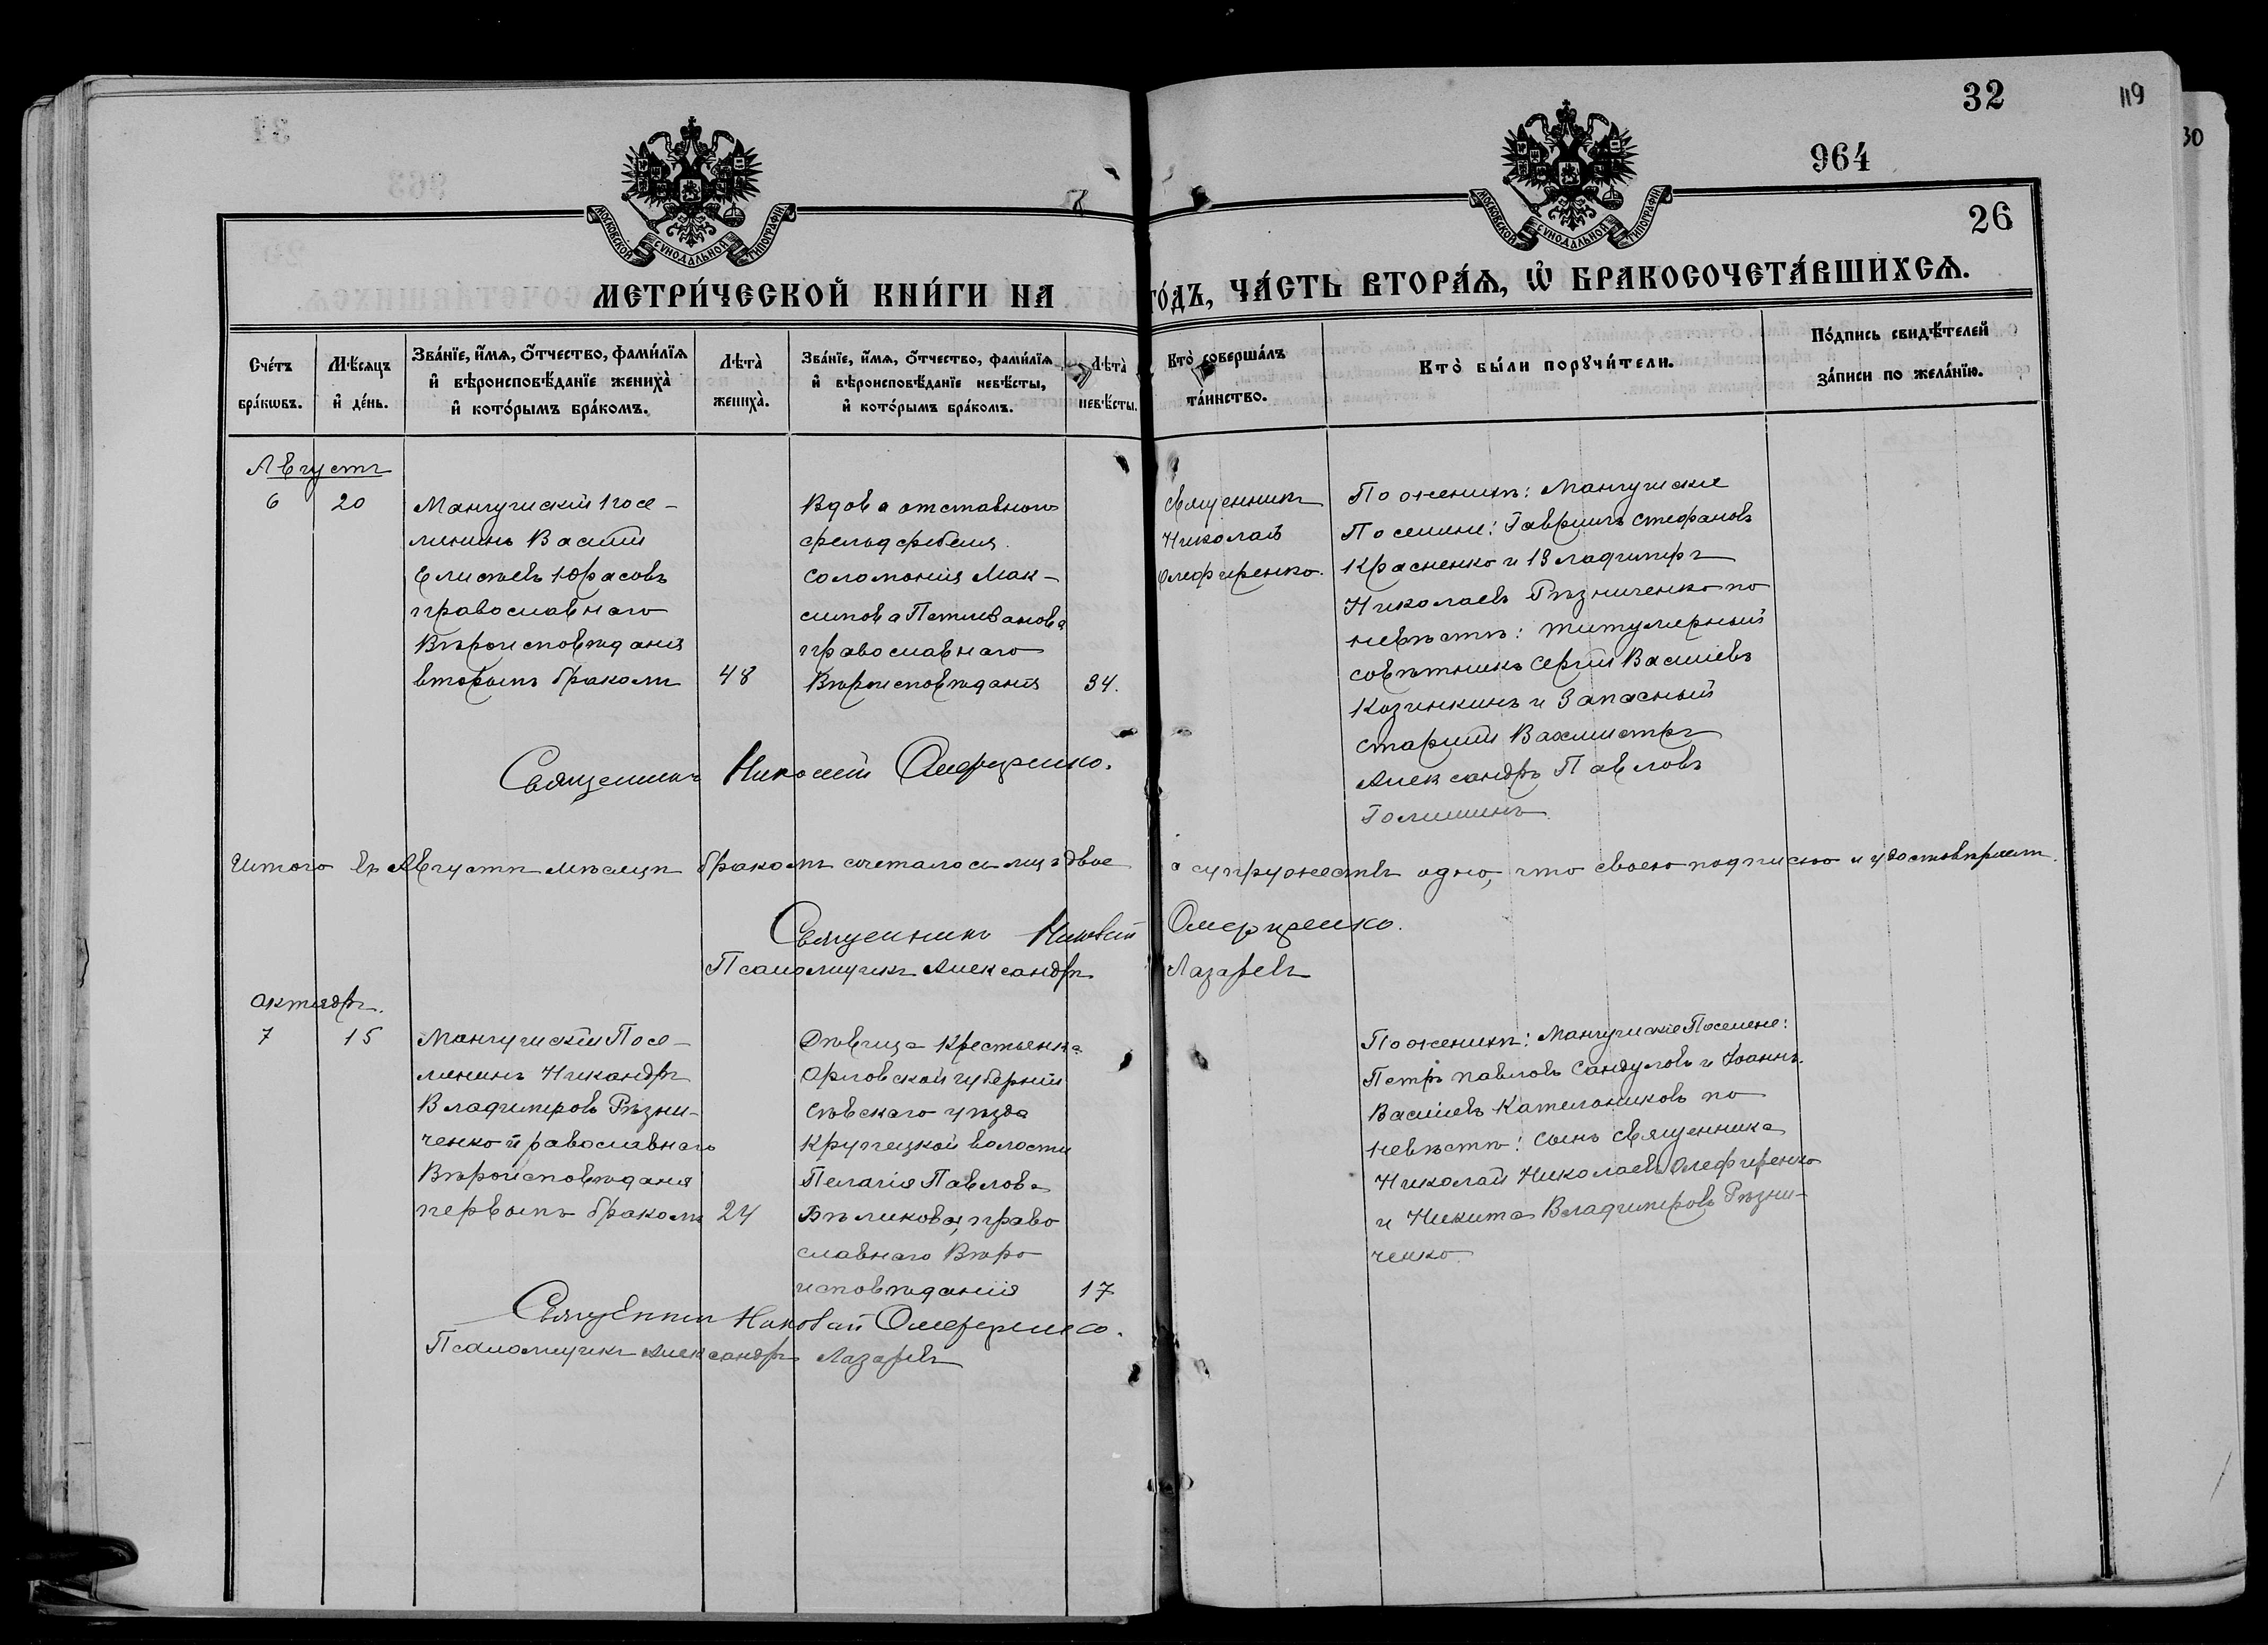 32
119
964
30
26
МОСКОВСКОЙ СѴНОДАЛЬНОЙ ТИПОГРАФІИ.
МОСКОВСКОЙ СѴНОДАЛЬНОЙ ТИПОГРАФІИ.
МЕТРИ́ЧЕСКОЙ КНИ́ГИ НА
ГО́ДЪ, ЧА́СТЬ ВТОРА́Ѧ, Ѽ БРАКОСОЧЕТА́ВШИХСѦ.
Сче́тъ бра́кѡвъ.
Мѣ́сѧцъ и҆ де́нь.
Зва́нїе, и҆́мѧ, ѻ҆́тчество, фами́лїѧ
и҆ вѣроисповѣ́данїе жениха̀
и҆ кото́рымъ бра́комъ.
Лѣта̀ жениха̀.
Зва́нїе, и҆́мѧ, ѻ҆́тчество, фами́лїѧ
и҆ вѣроисповѣ́данїе невѣ́сты,
и҆ кото́рымъ бра́комъ.
Лѣта̀ невѣ́сты.
Кто̀ соверша́лъ та́инство.
Кто̀ бы́ли порꙋчи́тели.
По́дпись свидѣ́телей за́писи по жела́нїю.
Августъ
6 20
Мангушскій посе-
лининъ Василій
Елисѣевъ Юрасовъ
православнаго
Вѣроисповѣданія
вторымъ бракомъ
48
Вдова отставного
фельдфебеля
Соломонія Мак-
симова
православнаго
Вѣроисповѣданія
34.
Священникъ
Николай
Олефиренко.
По женихѣ: Мангушские
Поселяне: Гавриилъ Стефановъ
Красненко и Владимиръ
Николаевъ Рѣзниченко по
невѣстѣ: титулярный
совѣтникъ Сергій Василіевъ
Козинкинъ и Запасный
старшій Вахмистръ
Александръ Павловъ
Священникъ Николай Олефиренко.
Итого въ Августѣ мѣсяцѣ бракомъ сочеталось лицъ двое а супружествъ одно, что своею подписью и удостовѣряемъ.
Священникъ Николай Олефиренко.
Псаломщикъ Александръ Лазаревъ
Октябрь.
7 15
Мангушскій Посе-
лининъ Никандръ
Владимировъ Рѣзни-
ченко православнаго
Вѣроисповѣданія
первымъ бракомъ
24
Дѣвица Крестьянка
Орловской губерніи
Сѣвскаго уѣзда
волости
Пелагія Павлова
Бѣликова, право
славнаго Вѣро
исповѣданія
17
По женихѣ: Мангушскіе Поселяне:
Петръ Павловъ Сандуловъ и Іоаннъ
Василіевъ Котельниковъ по
невѣстѣ: сынъ священника
Николай Николаевъ Олефиренко
и Никита Владимировъ Рѣзни-
ченко
Священникъ Николай Олефиренко.
Псаломщикъ Александръ Лазаревъ